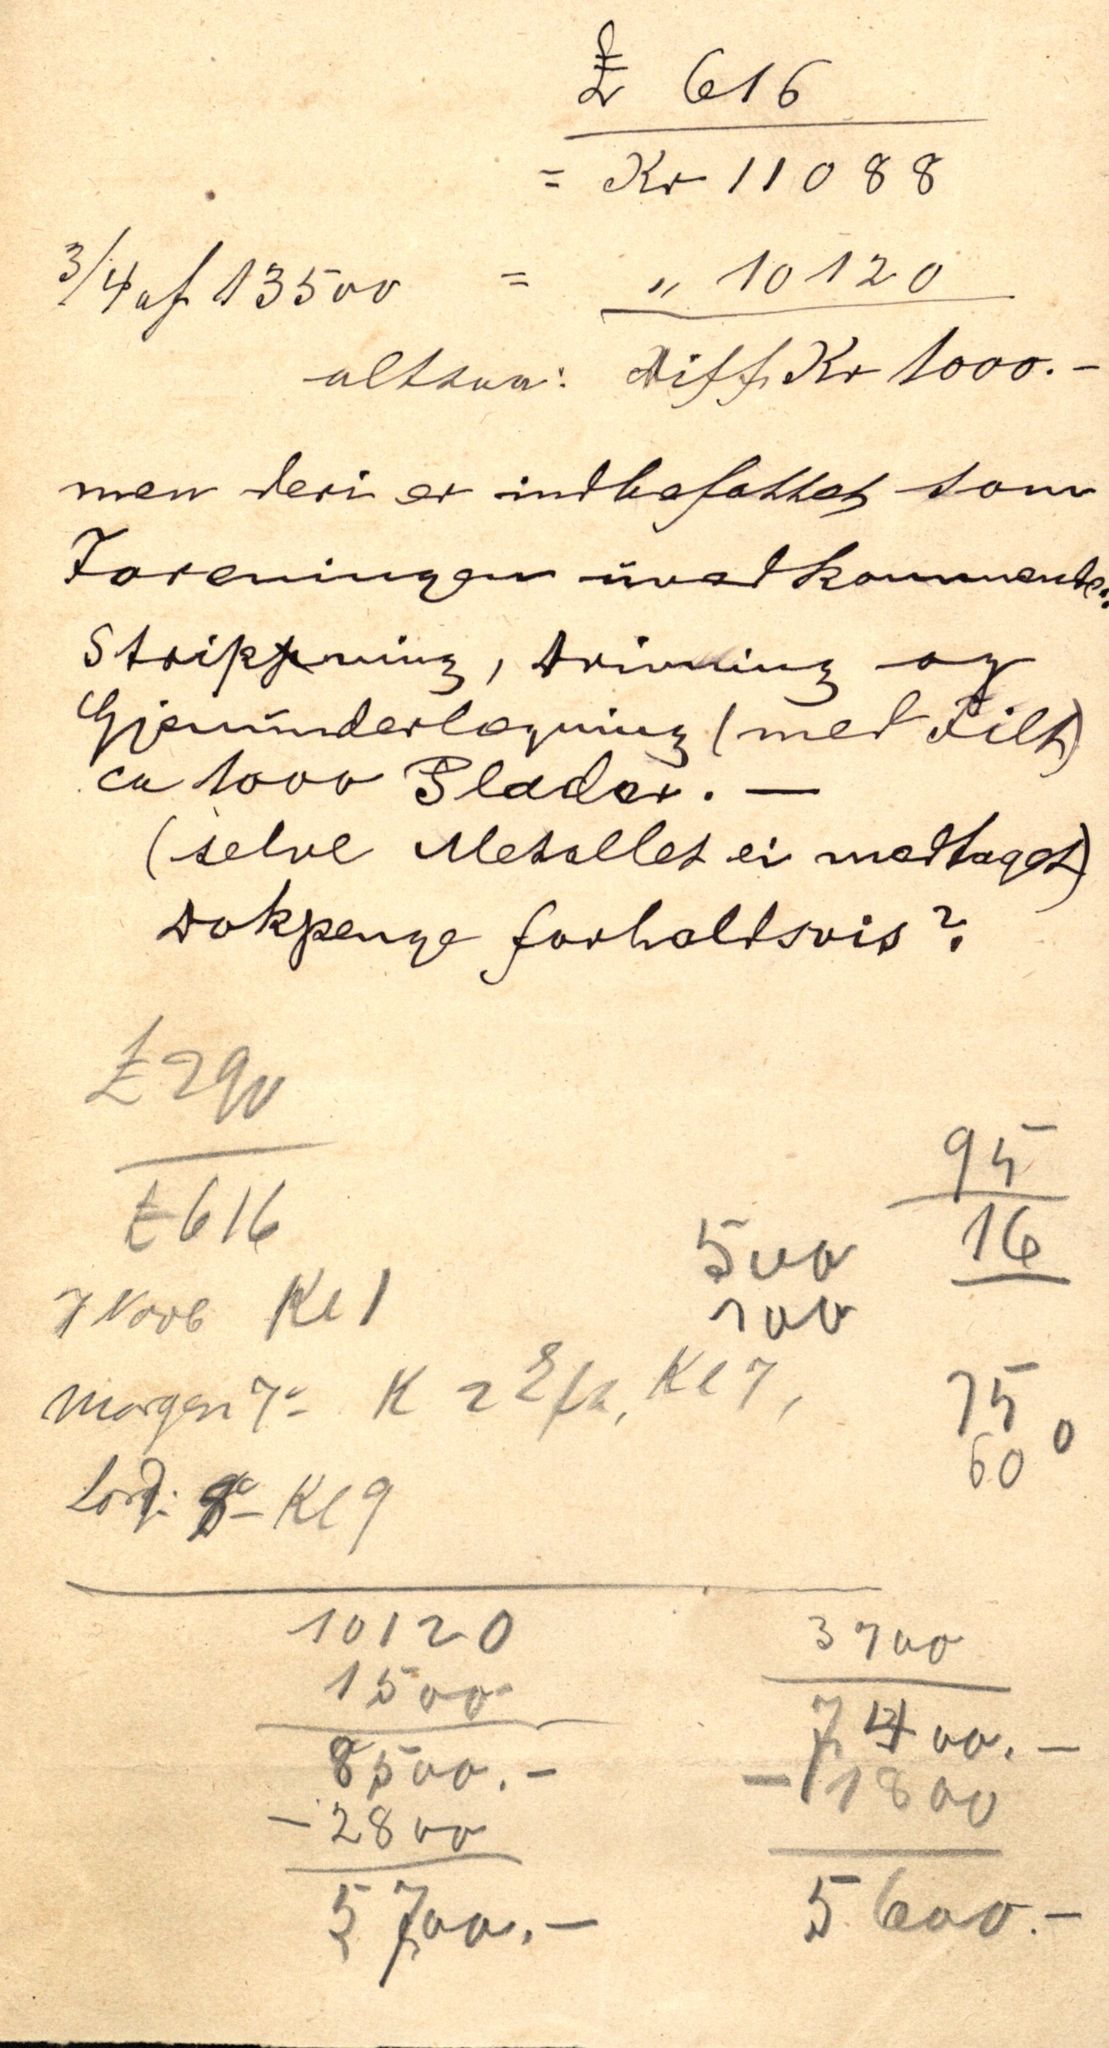 £ 616
= Kr 11088
3/4 af 13500 = „ 10120
altsaa: Diff. Kr 1000.-
men deri er indbefattet som
Foreningen uvedkommende:
Stripping, drivning og
Gjenunderlægning (med Filt)
ca 1000 Plader. —
(selve Metallet ei medtaget)
Dokpenge forholdsvis?
£ 290
£ 616
95
16
500
100
7 Novb Kl 1
Morgen 7de K 2 Kl 7,
75
60 0
Lørd: 8de Kl 9
10120 3700
1500 7400.-
8500.- -1800
-2800 5600.-
5700.-